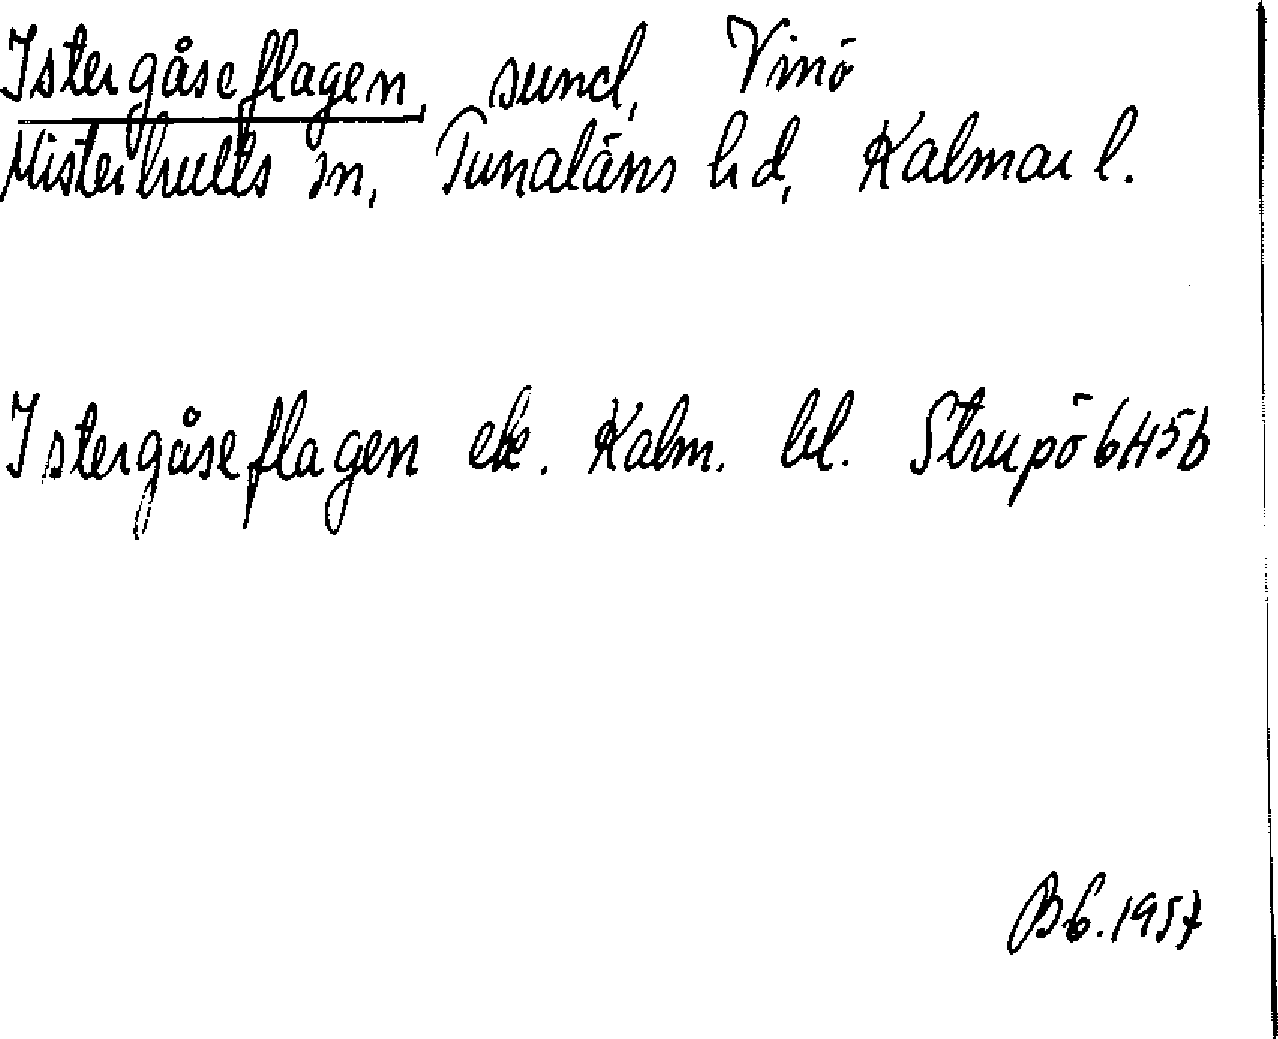 Istergåseflagen, sund, Vinö
Misterhults sn, Tunaläns hd, Kalmar l.
Istergåseflagen ek. Kalm. bl. Strupö 6H5b
Bb. 1957